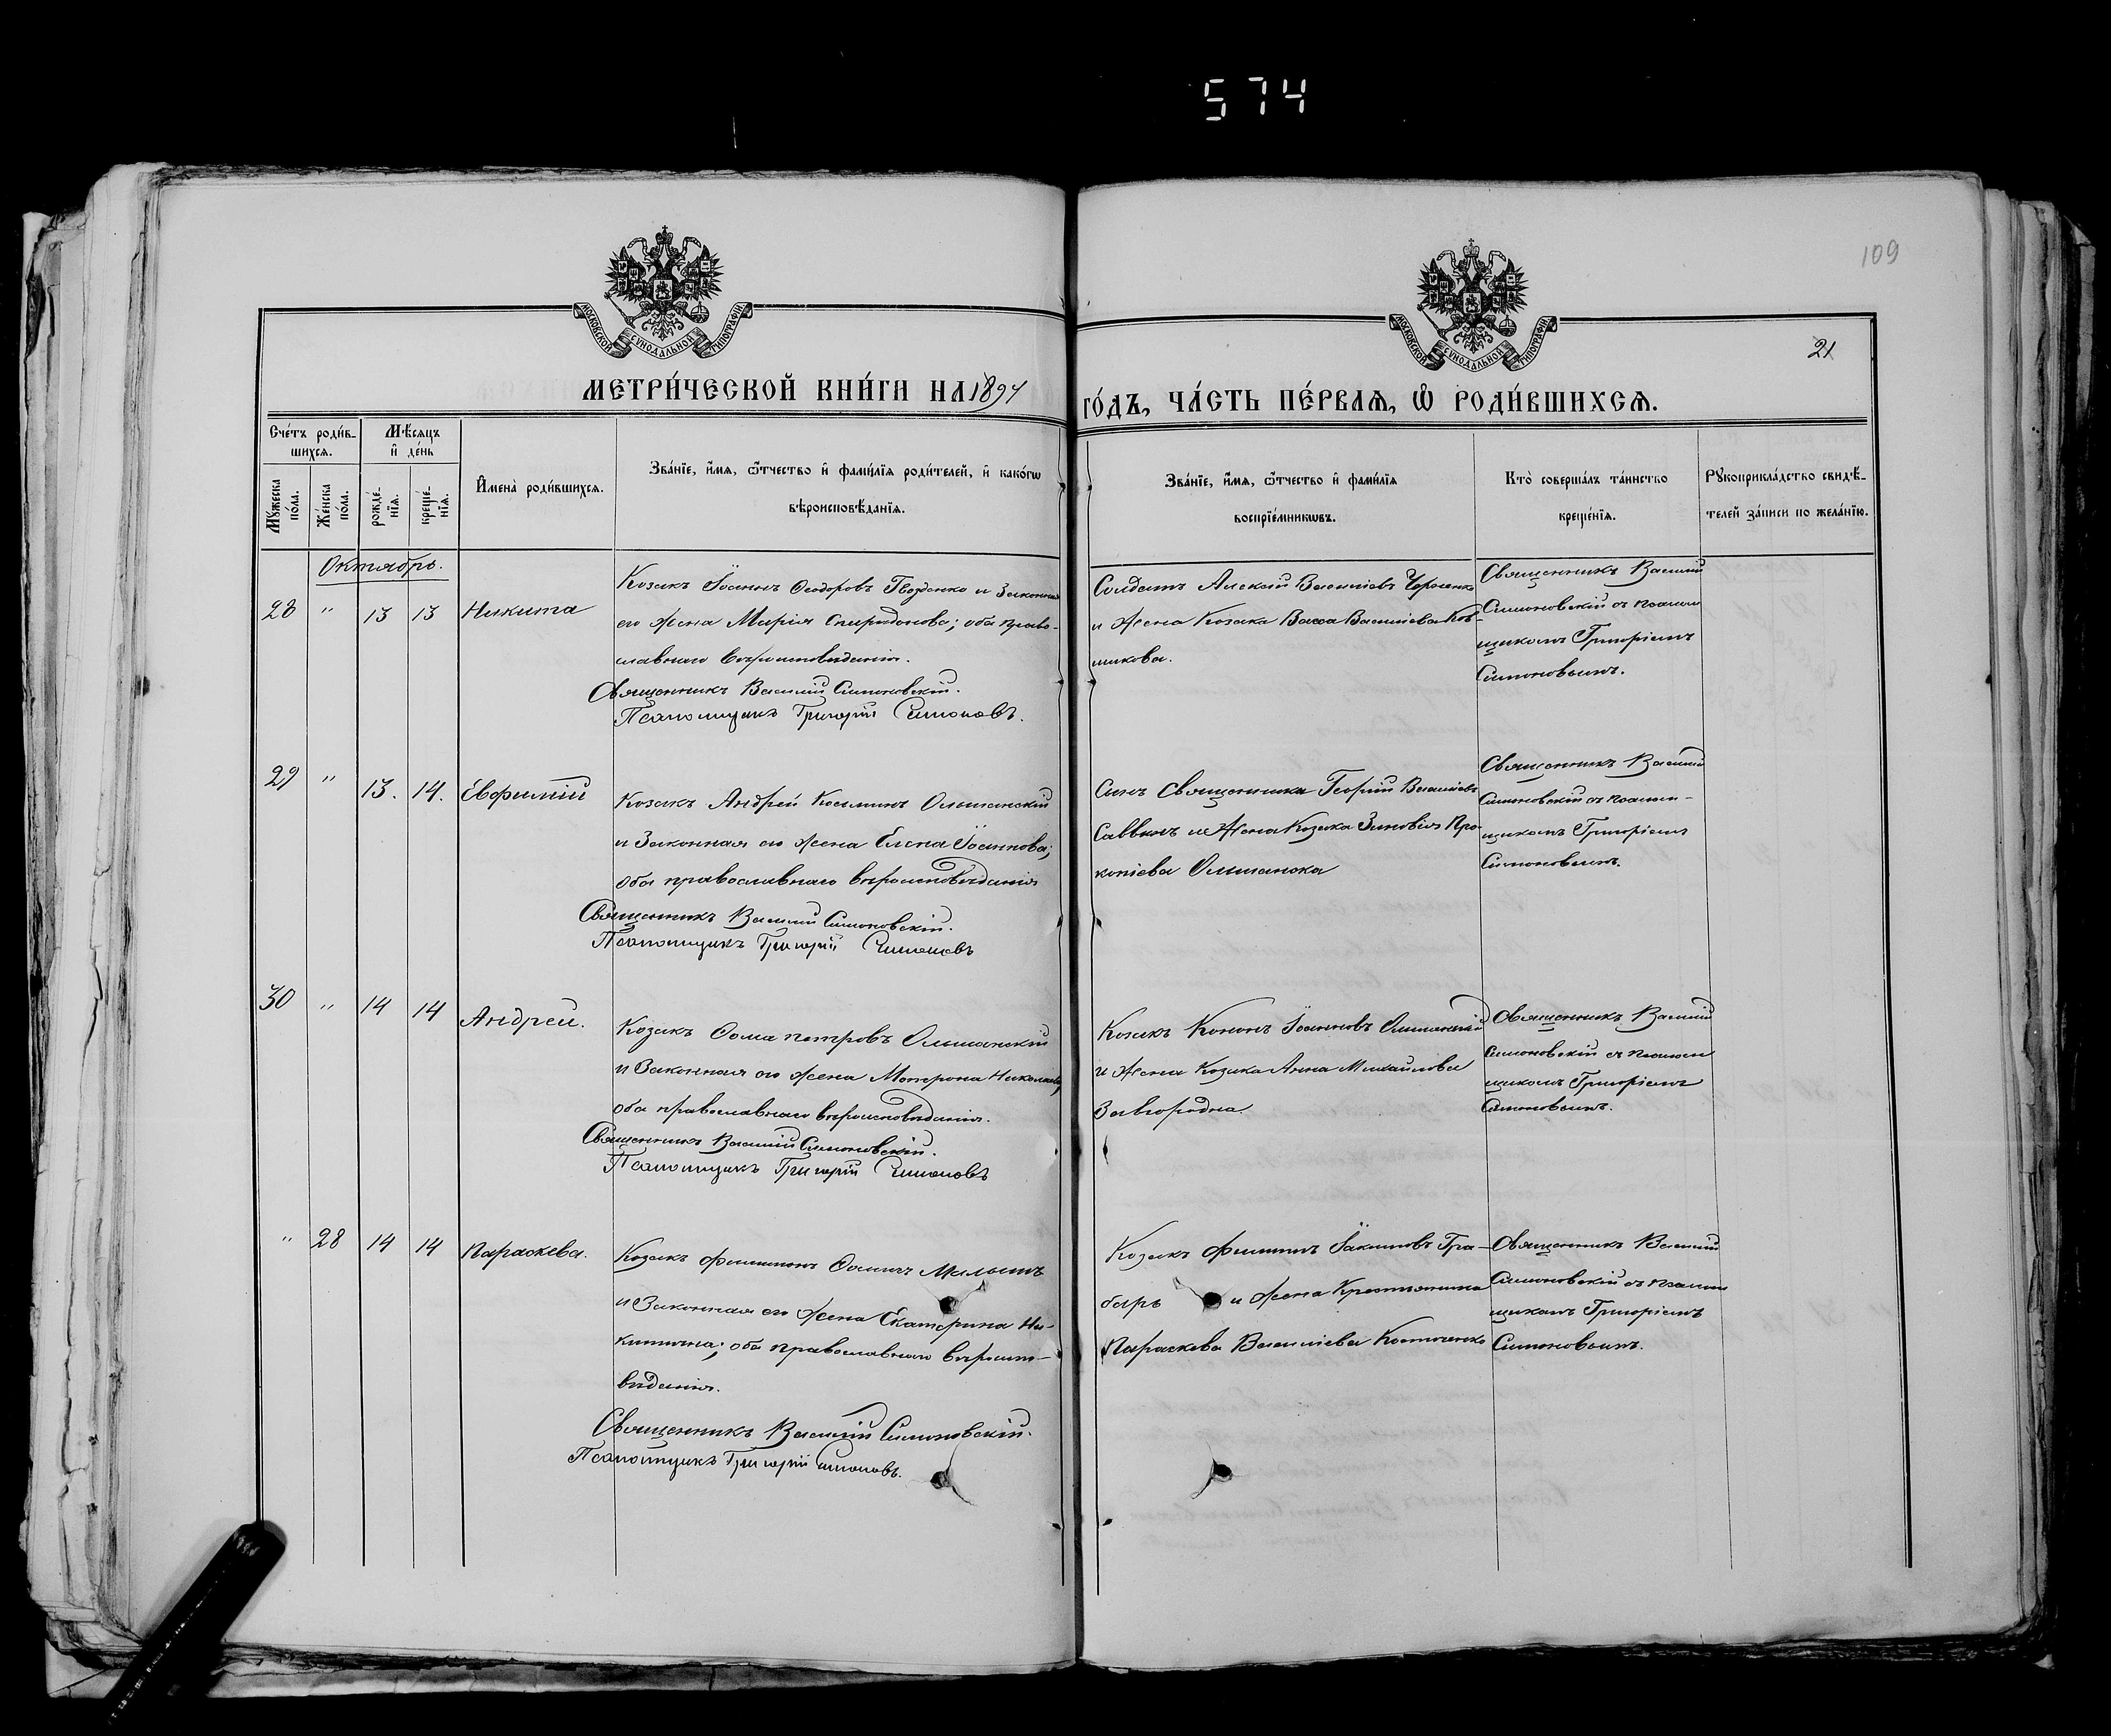 574
109
21
МОСКОВСКОЙ СУНОДАЛЬНОЙ ТИПОГРАФІИ
МОСКОВСКОЙ СУНОДАЛЬНОЙ ТИПОГРАФІИ
МЕТРИ́ЧЕСКОЙ КНИ́ГИ НА 1897
ГО́ДЪ, ЧА́СТЬ ПЕ́РВАѦ, Ѡ РОДИ́ВШИХСѦ.
Сче́тъ роди́в-
шихсѧ.
Мѣ́сѧцъ
и҆ де́нь
Мꙋ́жеска
по́ла.
Же́нска
по́ла.
рожде́-
нїѧ.
креще́-
нїѧ.
И҆мена̀ роди́вшихсѧ.
Зва́нїе, и҆́мѧ, ѻ҆́тчество и҆ фами́лїѧ роди́телей, и҆ како́гѡ
вѣроисповѣ́данїѧ.
Зва́нїе, и҆́мѧ, ѻ҆́тчество и҆ фами́лїѧ
воспрїе́мникѡвъ.
Кто̀ соверша́лъ та́инство
креще́нїѧ.
Рꙋкоприкла́дство свидѣ́-
телей за́писи по жела́нїю.
Октябрь.
28 " 13 13 Никита
Козакъ Іоаннъ Ѳеодоровъ Гвозденко и законная
его жена Марія Спиридонова; оба право-
славнаго вѣроисповѣданія.
Священникъ Василій Симоновскій.
Псаломщикъ Григорій Симоновъ.
Солдатъ Алексій Василіевъ
и жена Козака Васса Василіева Ков-
шикова.
Священникъ Василій
Симоновскій съ псалом
щикомъ Григоріемъ
Симоновымъ.
29 " 13. 14. Евфимій
Козакъ Андрей Косьминъ Ольшанскій
и законная его жена Елена Іоаннова;
оба православнаго вѣроисповѣданія
Священникъ Василій Симоновскій.
Псаломщикъ Григорій Симоновъ
Сынъ Священника Георгій Василіевъ
Саввинъ и жена Козака Зиновія Про-
копіева Ольшанска
Священникъ Василій
Симоновскій съ псалом-
щикомъ Григоріемъ
Симоновымъ.
30 " 14 14 Андрей.
Козакъ Ѳома Петровъ Ольшанскій
и законная его жена Матрона Николаева,
оба православнаго вѣроисповѣданія.
Священникъ Василій Симоновскій.
Псаломщикъ Григорій Симоновъ
Козакъ Кононъ Іоанновъ Ольшанскій
и жена Козака Анна Михайлова
Завгородна
Священникъ Василій
Симоновскій съ псалом
щикомъ Григоріемъ
Симоновымъ.
" 28 14 14 Параскева.
Козакъ Филимонъ Ѳоминъ Малышъ
и законная его жена Екатерина Ни-
китична; оба православнаго вѣроиспо-
вѣданія.
Священникъ Василій Симоновскій.
Псаломщикъ Григорій Симоновъ.
Козакъ Филиппъ Іакимовъ Гра-
барь и жена Крестьянина
Параскева Василіева Костюченко
Священникъ Василій
Симоновскій съ псалом
щикомъ Григоріемъ
Симоновымъ.